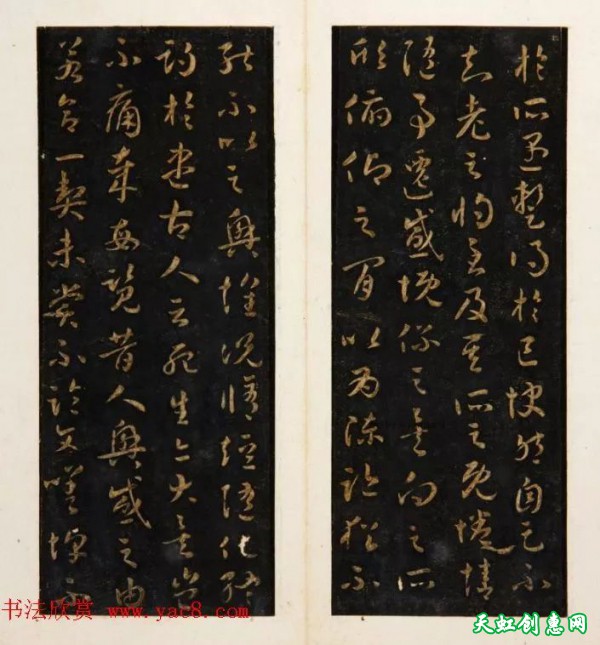 於所遇暫得於己快然自足不
知老之將至及其所之既倦情
隨事遷感慨係之矣向之所
欣俯仰之間以為陳迹猶不
能不以之興懷況脩短隨化終
期於盡古人云死生亦大矣豈
不痛哉每覽昔人興感之由
若合一契未嘗不臨文嗟悼
书法欣赏 www.yac8.com
天虹创惠网